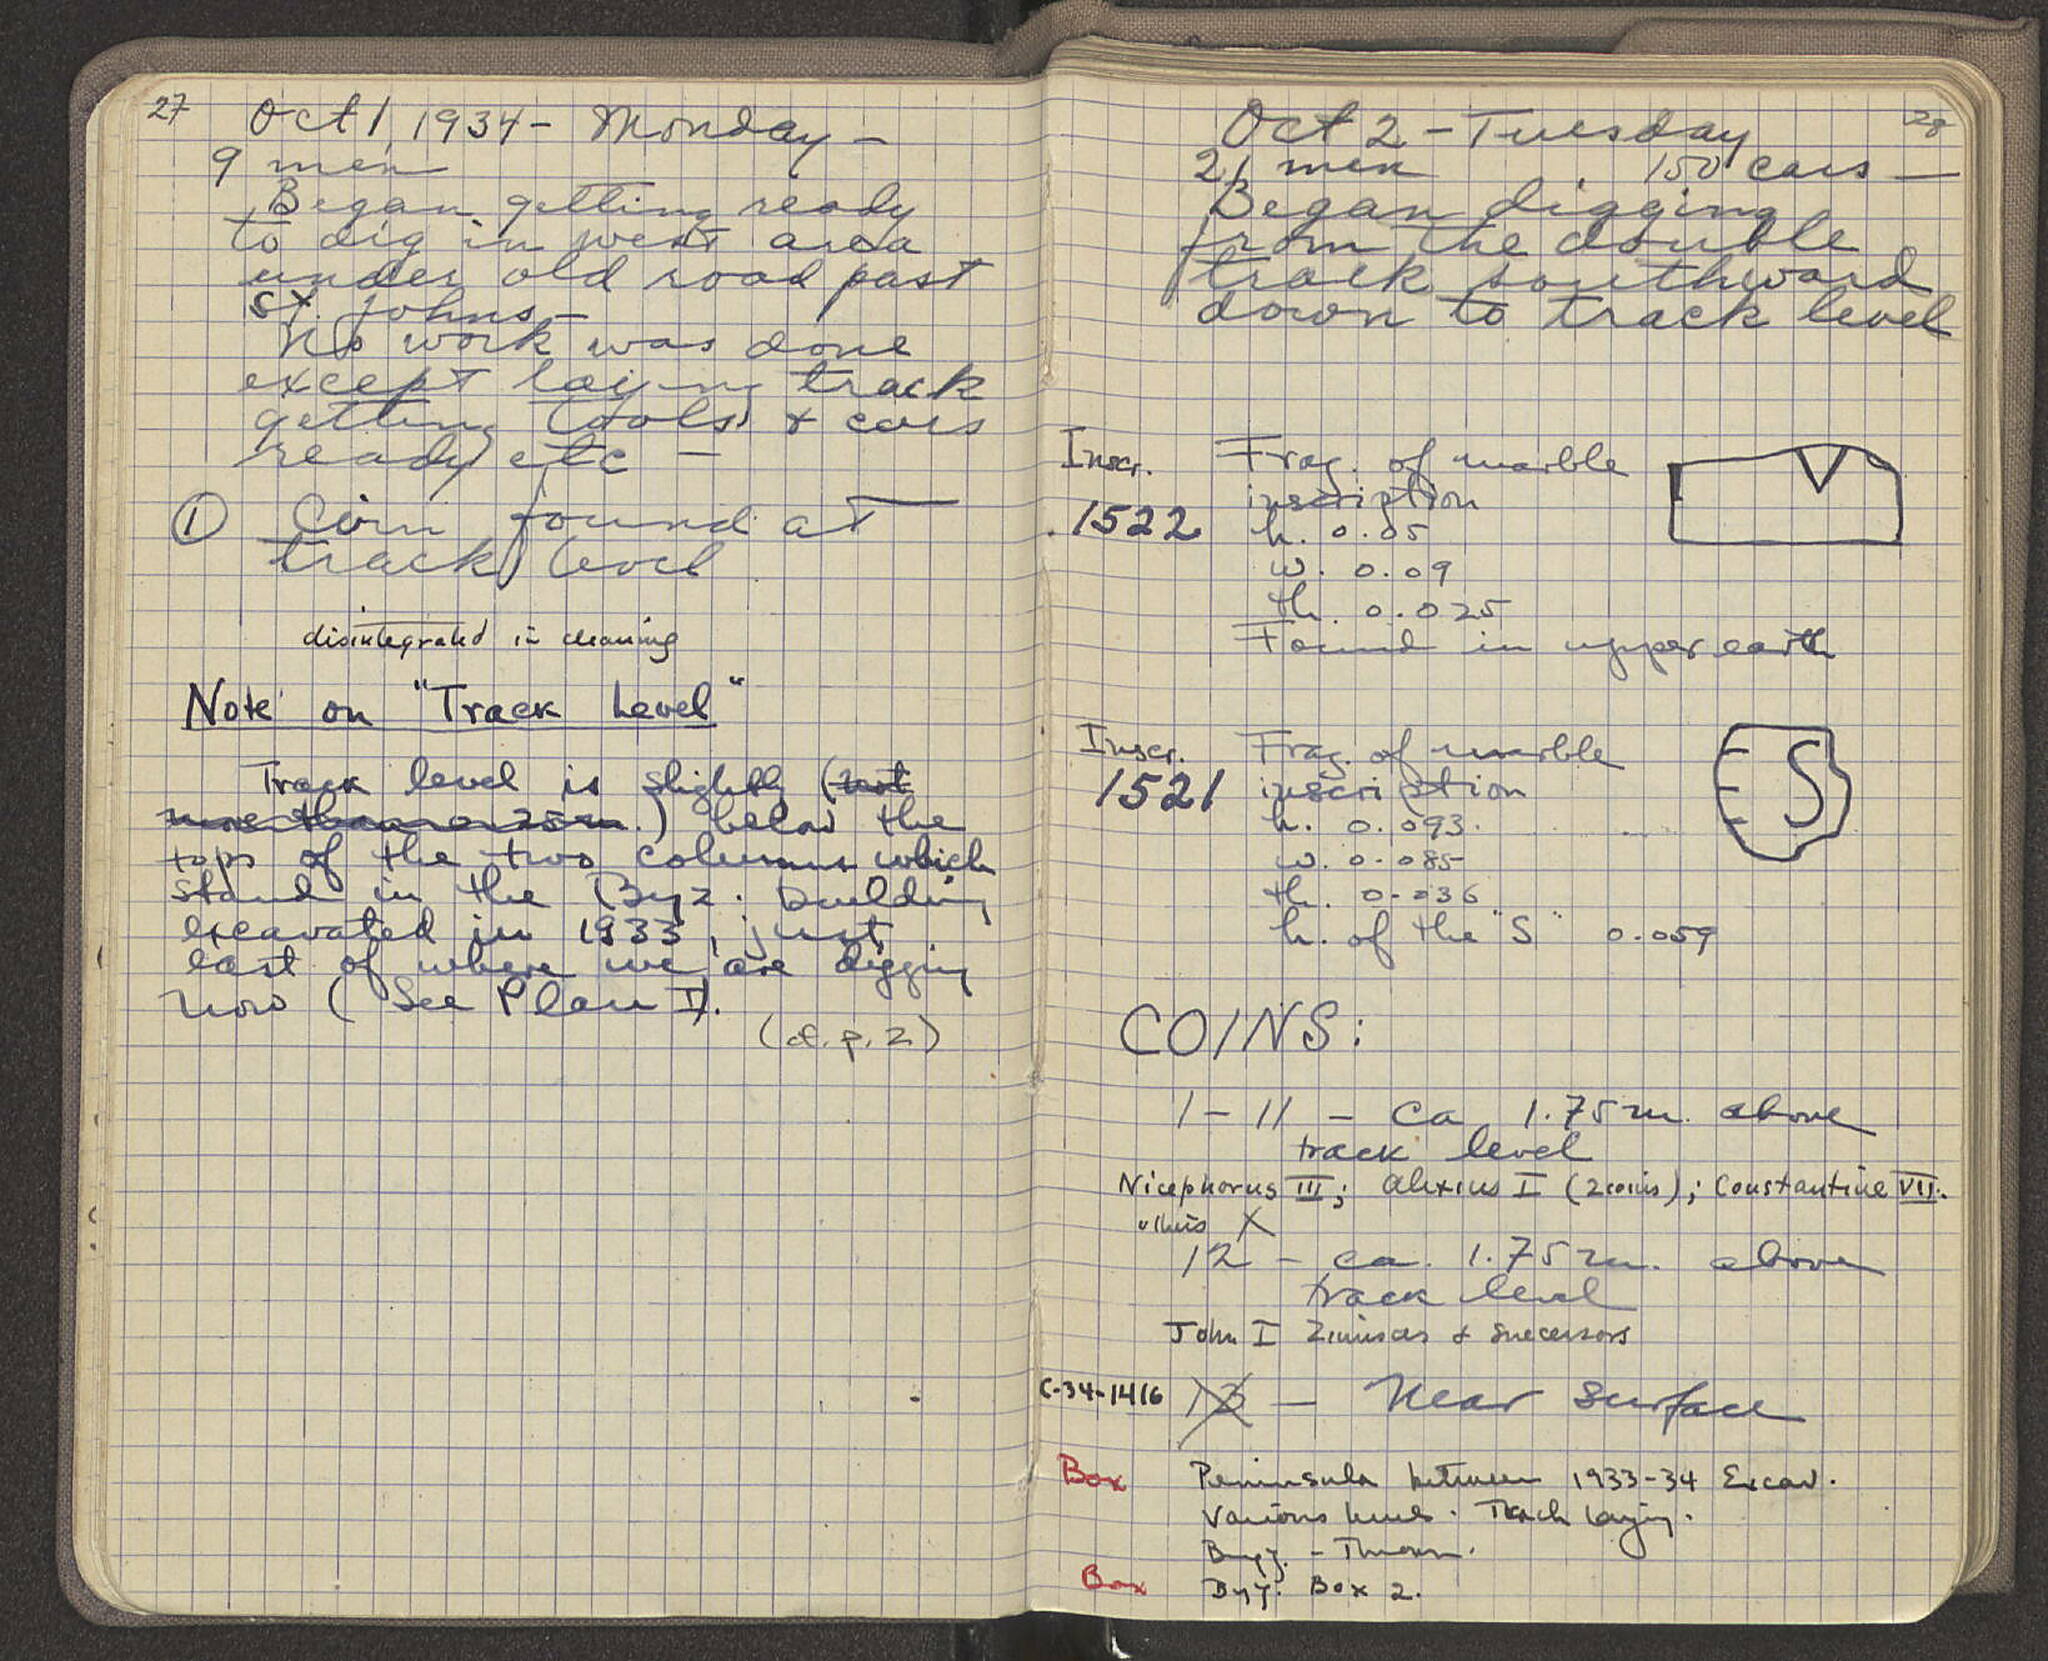 27
Oct 1, 1934 - Monday -
9 men
Began getting ready
to dig in west area
under old road past
St. Johns -
No work was done
except laying track
getting tools & cars
ready etc -
① Coin found at
track level
disintegrated in cleaning
Note on "Track Level"
Track level is slightly (not
more than 0.25 m.) below the
tops of the two columns which
stand in the Byz. building
excavated in 1933, just
east of where we are digging
now (See Plan I).
(cf. p. 2)
28
Oct 2 - Tuesday
21 men 150 cars -
Began digging
from the double
track southward
down to track level
Inscr. Frag. of marble
inscription
1522
h. 0.05
w. 0.09
th. 0.025
Found in upper earth
V
Inscr. Frag. of marble
1521 inscription
h. 0.093.
w. 0.085
th. 0.036
h. of the "S" 0.059
S
COINS:
1 - 11 - ca 1.75 m. above
track level
Nicephorus III; Alexius I (2 coins); Constantine VII.
others X
12 - ca. 1.75 m. above
track level
John I Zimisces & successors
C-34-1416 13 - Near surface
Box Peninsula between 1933-34 Excav.
Various levels. Track laying.
Byz. - Thrown.
Box Byz. Box 2.